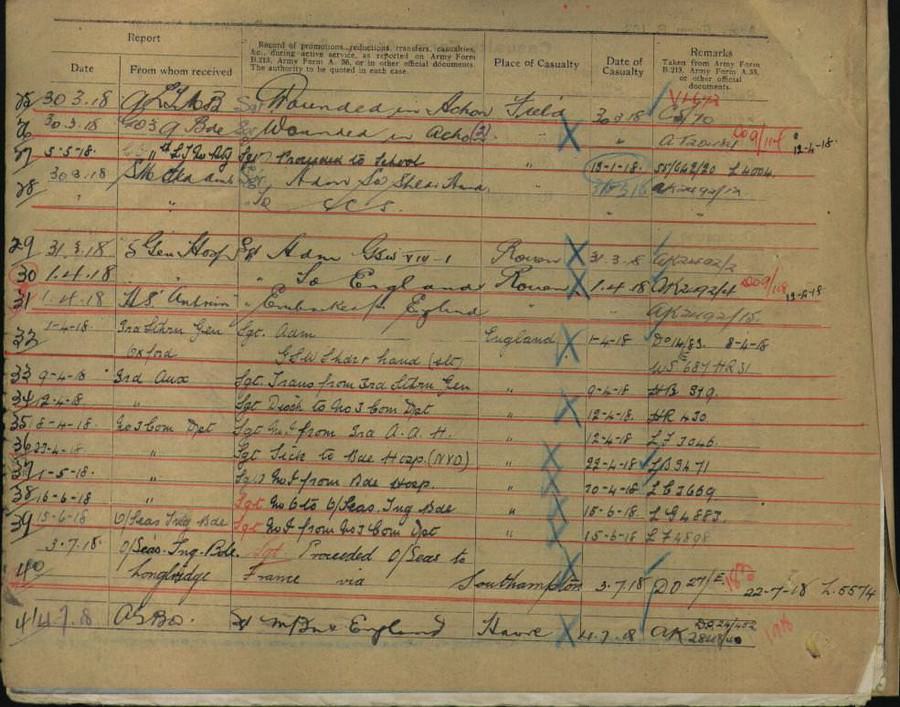 Report
Record of promotions, reductions, transfers, casualties, &c., during active service, as reported on Army Form B.213, Army Form A. 36, or in other official documents. The authority to be quoted in each case.
Place of Casualty
Date of Casualty
Remarks
Taken from Army Form B.213, Army Form A.36, or other official documents.
Date
From whom received
30.3.18 Sgt Wounded in Action Field 30.3.18
30.3.18 Bde Wounded in Actn (2) " 12-4-18
27 5-5-18 Sgt Proceeded to School " 12-1-18 55/642/20 L4004
28 30.3.18 Adm " AK2492/12
" " To CCS "
29 31.3.18 5 Gen Hosp Adm GSW VIII-1 Rouen 31.3.18 AK2492/2
30 1.4.18 " To England Rouen 1.4.18 AK2492/4 12-4-18
31 1.4.18 HS Antrim " Embarked for England AK2492/15
32 1-4-18 3rd Sthrn Gen Sgt. Adm England 1-4-18 DO14/83 8-4-18
Oxford GSW Shdr & hand (slt) WS 687 HR31
33 9-4-18 3rd Aux Sgt. Trans from 3rd Sthrn Gen " 9-4-18 HB 319
34 12-4-18 " Sgt Disch to No 3 Com Dpt " 12-4-18 HR 430
35 18-4-18 No 3 Com Dpt Sgt M.I from 3rd A. A. H. " 12-4-18 LF 3046
36 23-4-18 " Sgt Sick to Bde Hosp. (NYD) " 22-4-18 LB3471
37 1-5-18 " Sgt M.I from Bde Hosp. " 30-4-18 LC3669
38 16-6-18 " Sgt M.O to O/Seas. Trg Bde " 15-6-18 LG4883
39 15-6-18 O/Seas Trg Bde Sgt M.I from No 3 Com Dpt " 15-6-18 LF4898
3.7.18 O/Seas. Trg. Bde. Sgt. Proceeded O/Seas to
40 Longbridge France via Southampton 3.7.18 DO 27/E 22-7-18 L.5574
41 4.7.18 AGBD. England Havre 4.7.18 AK